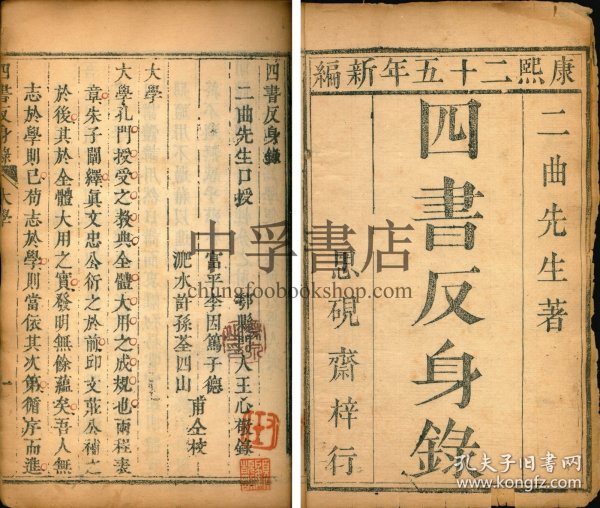 康熙二十五年新編
二曲先生著
四書反身錄
思硯齋梓行
四書反身錄
二曲先生口授
鄠縣門人王心敬錄
富平李因篤子德
淝水許孫荃四山
甫仝校
大學
大學孔門授受之教典全體大用之成規也兩程表
章朱子闡繹真文忠公衍之於前邱文莊公補之
於後其於全體大用之實發明無餘蘊矣吾人無
志於學則已苟志於學則當依其次第循序而進
四書反身錄 大學 一
中孚書店
chungfoobookshop.com
孔夫子旧书网
www.kongfz.com